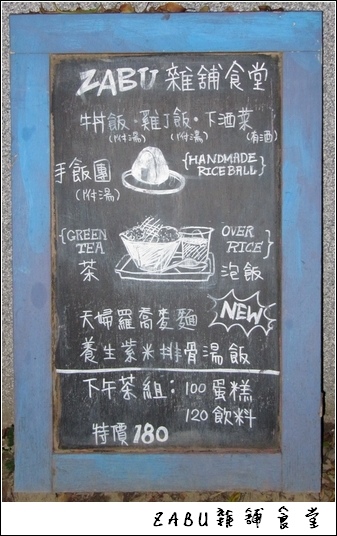 ZABU 雜舖食堂
牛丼飯·雞丁飯·下酒菜
(附湯) (附湯) (有酒)
手飯團 {HANDMADE RICEBALL}
(附湯)
{GREEN TEA OVER RICE}
茶 泡飯
NEW
天婦羅蕎麥麵
養生紫米排骨湯飯
下午茶組：100 蛋糕
120 飲料
特價 180
ZABU雜舖食堂